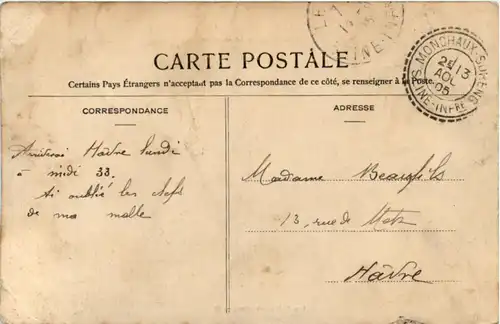 CARTE POSTALE
Certains Pays Étrangers n'acceptant pas la Correspondance de ce côté, se renseigner à la Poste.
CORRESPONDANCE
ADRESSE
MONCHAUX-SORENG
2E 13
AOU
05
SEINE-INFRE
Arriverai Hâvre lundi
à midi 33.
Ai oublié les clefs
de ma malle
Madame Beaufils
13, rue de Metz
Hâvre